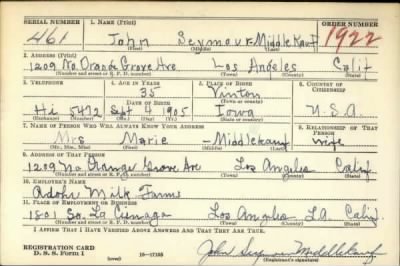 SERIAL NUMBER 1. NAME (Print) ORDER NUMBER
461 John Seymour Middlekauf 1922
(First) (Middle) (Last)
2. ADDRESS (Print)
1209 No. Orange Grove Ave. Los Angeles Calif
(Number and street or R. F. D. number) (Town) (County) (State)
3. TELEPHONE 4. AGE IN YEARS 5. PLACE OF BIRTH 6. COUNTRY OF CITIZENSHIP
35 Vinton
DATE OF BIRTH (Town or county)
Hi 5472 Sept 4 1905 Iowa U.S.A.
(Exchange) (Number) (Mo.) (Day) (Yr.) (State or country)
7. NAME OF PERSON WHO WILL ALWAYS KNOW YOUR ADDRESS 8. RELATIONSHIP OF THAT PERSON
Mrs Marie Middlekauf wife
(Mr., Mrs., Miss) (First) (Middle) (Last)
9. ADDRESS OF THAT PERSON
1209 No. Orange Grove Ave Los Angeles Calif.
(Number and street or R. F. D. number) (Town) (County) (State)
10. EMPLOYER'S NAME
Adohr Milk Farms
11. PLACE OF EMPLOYMENT OR BUSINESS
1801 So. La Cienaga Los Angeles L.A. Calif.
(Number and street or R. F. D. number) (Town) (County) (State)
I AFFIRM THAT I HAVE VERIFIED ABOVE ANSWERS AND THAT THEY ARE TRUE.
REGISTRATION CARD
D. S. S. Form 1 (over) 16—17105 John Seymour Middlekauf
(Registrant's signature)